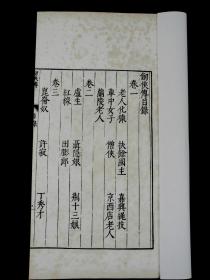 劒俠傳目錄
卷一
老人化猿 扶餘國主 嘉興繩技
車中女子 僧俠 京西店老人
蘭陵老人
卷二
盧生 聶隱娘 荊十三娘
紅線 田膨郎
卷三
崑崙奴 許寂 丁秀才